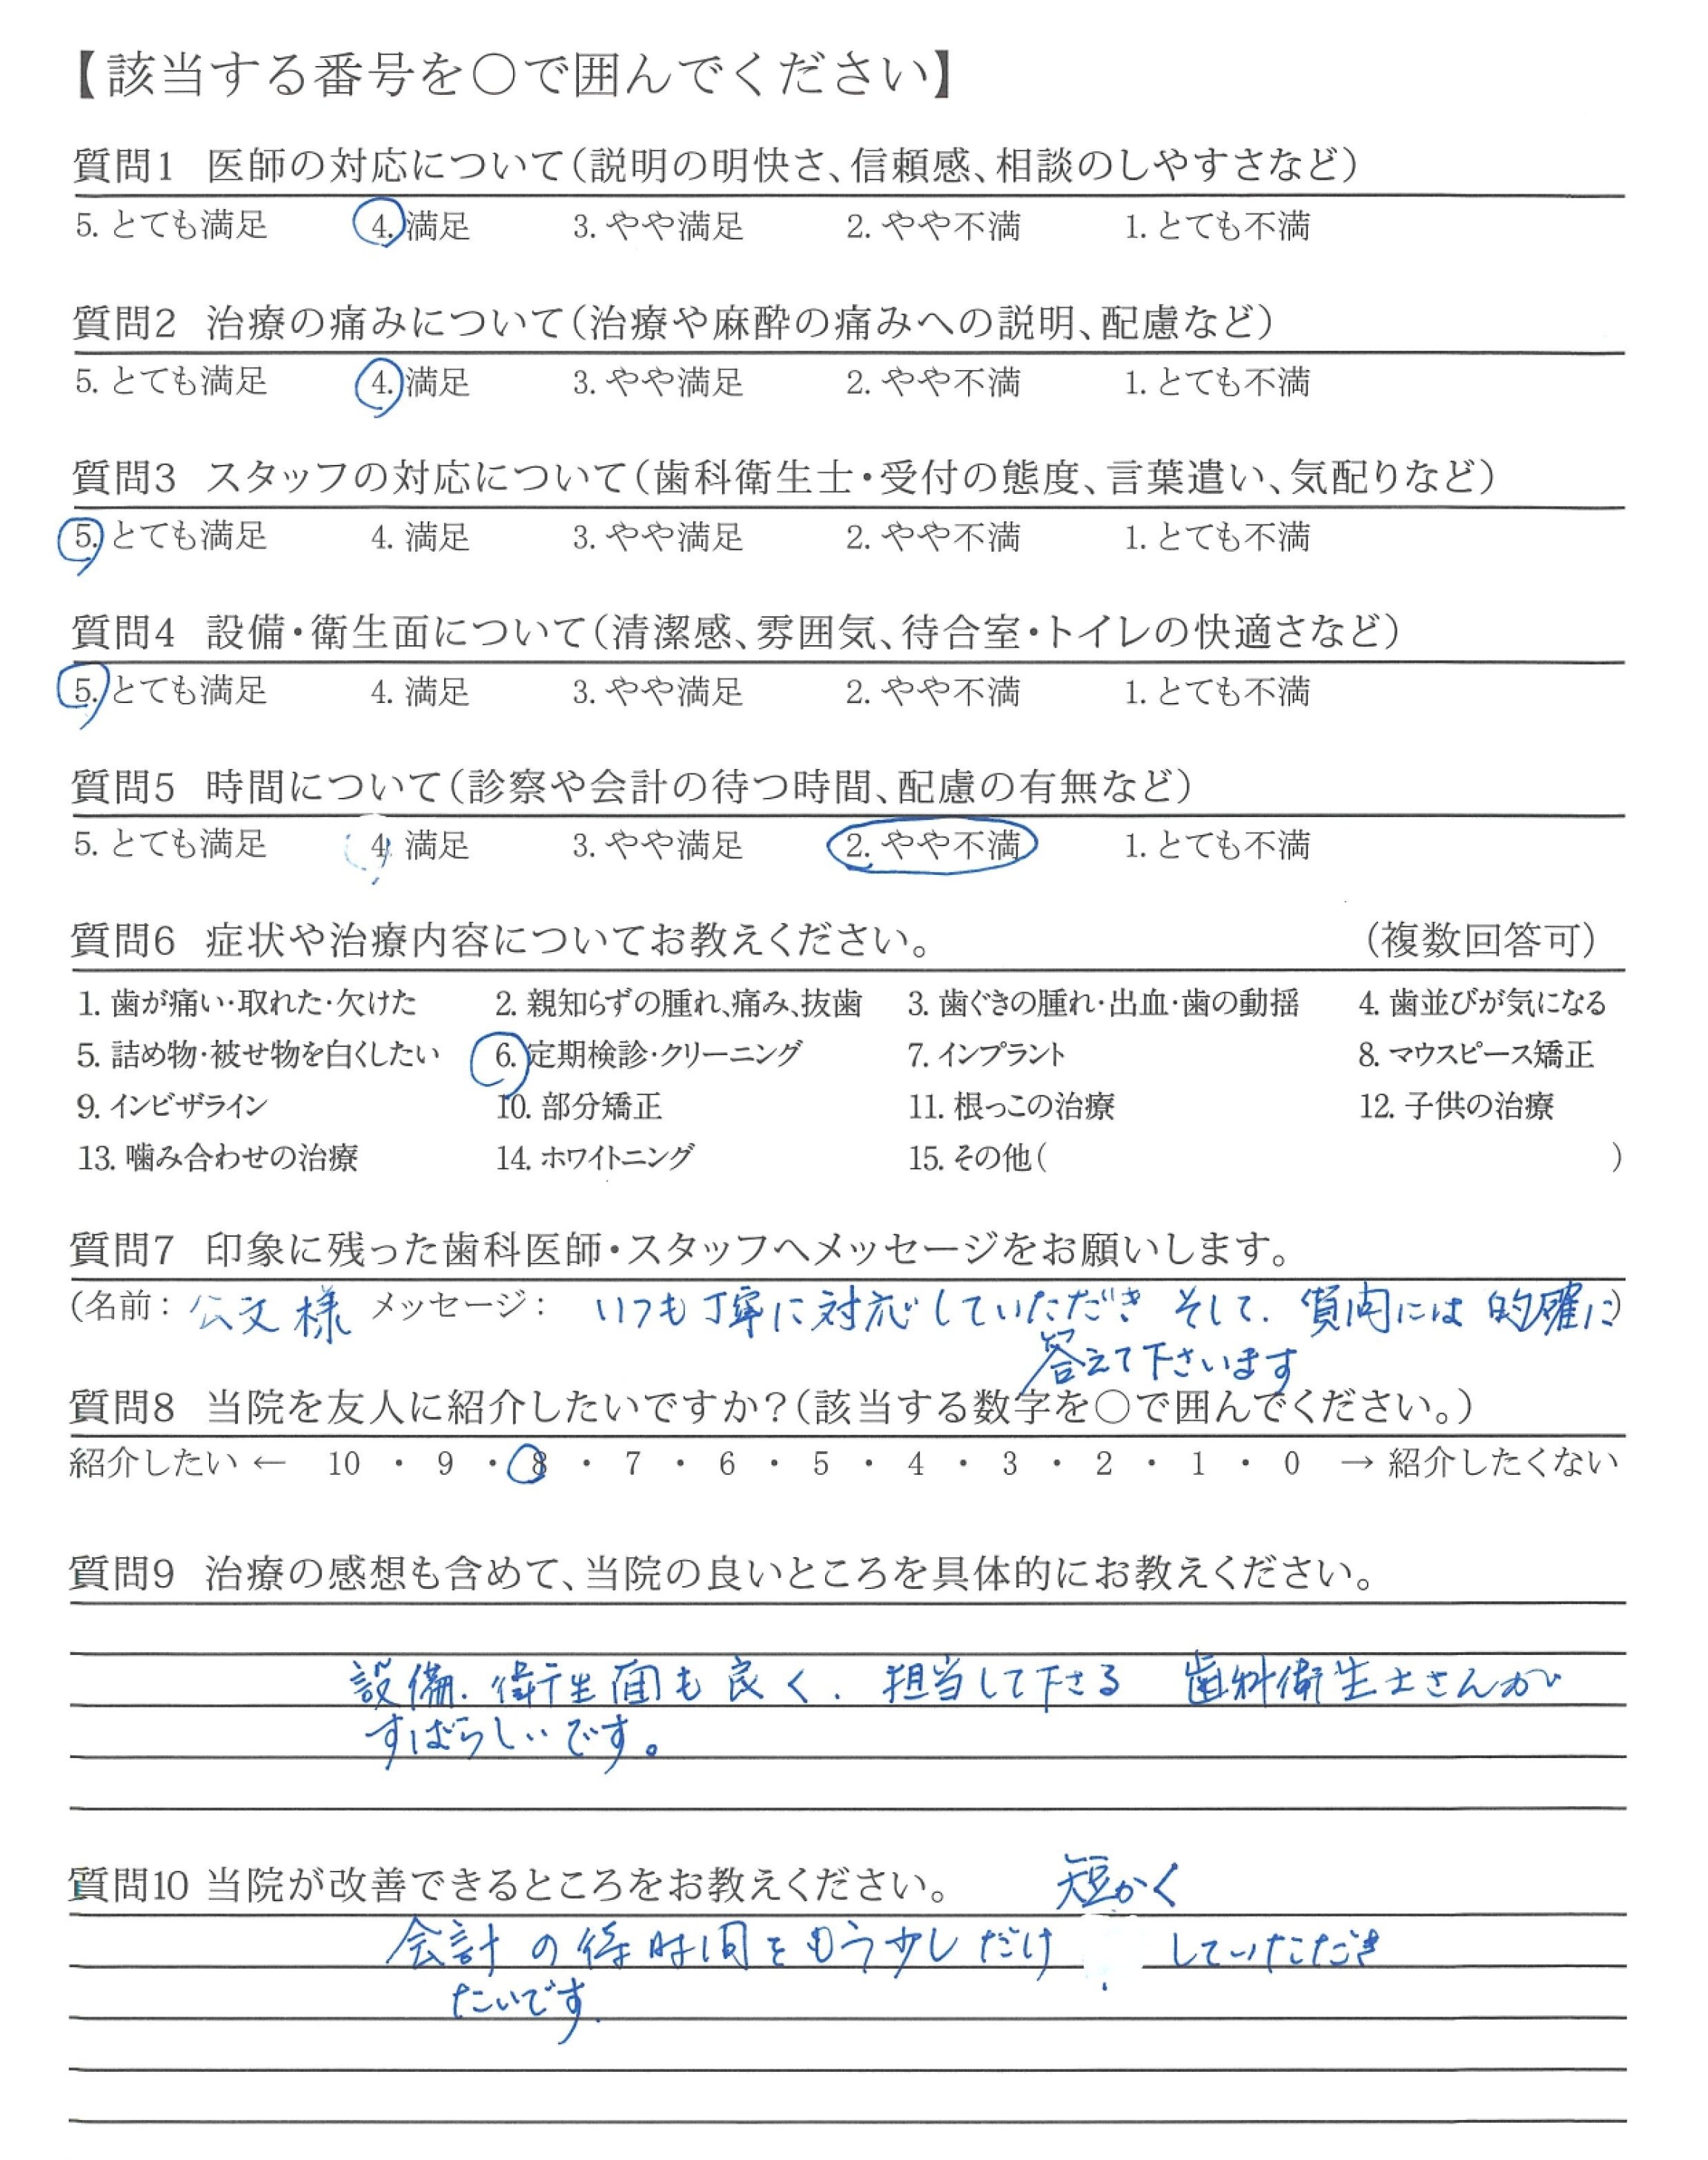 【該当する番号を○で囲んでください】
質問1 医師の対応について(説明の明快さ、信頼感、相談のしやすさなど)
5. とても満足 4. 満足 3. やや満足 2. やや不満 1. とても不満
質問2 治療の痛みについて(治療や麻酔の痛みへの説明、配慮など)
5. とても満足 4. 満足 3. やや満足 2. やや不満 1. とても不満
質問3 スタッフの対応について(歯科衛生士・受付の態度、言葉遣い、気配りなど)
5. とても満足 4. 満足 3. やや満足 2. やや不満 1. とても不満
質問4 設備・衛生面について(清潔感、雰囲気、待合室・トイレの快適さなど)
5. とても満足 4. 満足 3. やや満足 2. やや不満 1. とても不満
質問5 時間について(診察や会計の待つ時間、配慮の有無など)
5. とても満足 4. 満足 3. やや満足 2. やや不満 1. とても不満
質問6 症状や治療内容についてお教えください。 (複数回答可)
1. 歯が痛い・取れた・欠けた 2. 親知らずの腫れ、痛み、抜歯 3. 歯ぐきの腫れ・出血・歯の動揺 4. 歯並びが気になる
5. 詰め物・被せ物を白くしたい 6. 定期検診・クリーニング 7. インプラント 8. マウスピース矯正
9. インビザライン 10. 部分矯正 11. 根っこの治療 12. 子供の治療
13. 噛み合わせの治療 14. ホワイトニング 15. その他( )
質問7 印象に残った歯科医師・スタッフへメッセージをお願いします。
(名前: 公文様 メッセージ: いつも丁寧に対応していただき そして、質問には 的確に)
答えて下さいます
質問8 当院を友人に紹介したいですか?(該当する数字を○で囲んでください。)
紹介したい ← 10 ・ 9 ・ 8 ・ 7 ・ 6 ・ 5 ・ 4 ・ 3 ・ 2 ・ 1 ・ 0 → 紹介したくない
質問9 治療の感想も含めて、当院の良いところを具体的にお教えください。
設備、衛生面も良く、担当して下さる 歯科衛生士さんが
すばらしいです。
質問10 当院が改善できるところをお教えください。
会計の待時間をもう少しだけ 短かく していただき
たいです.